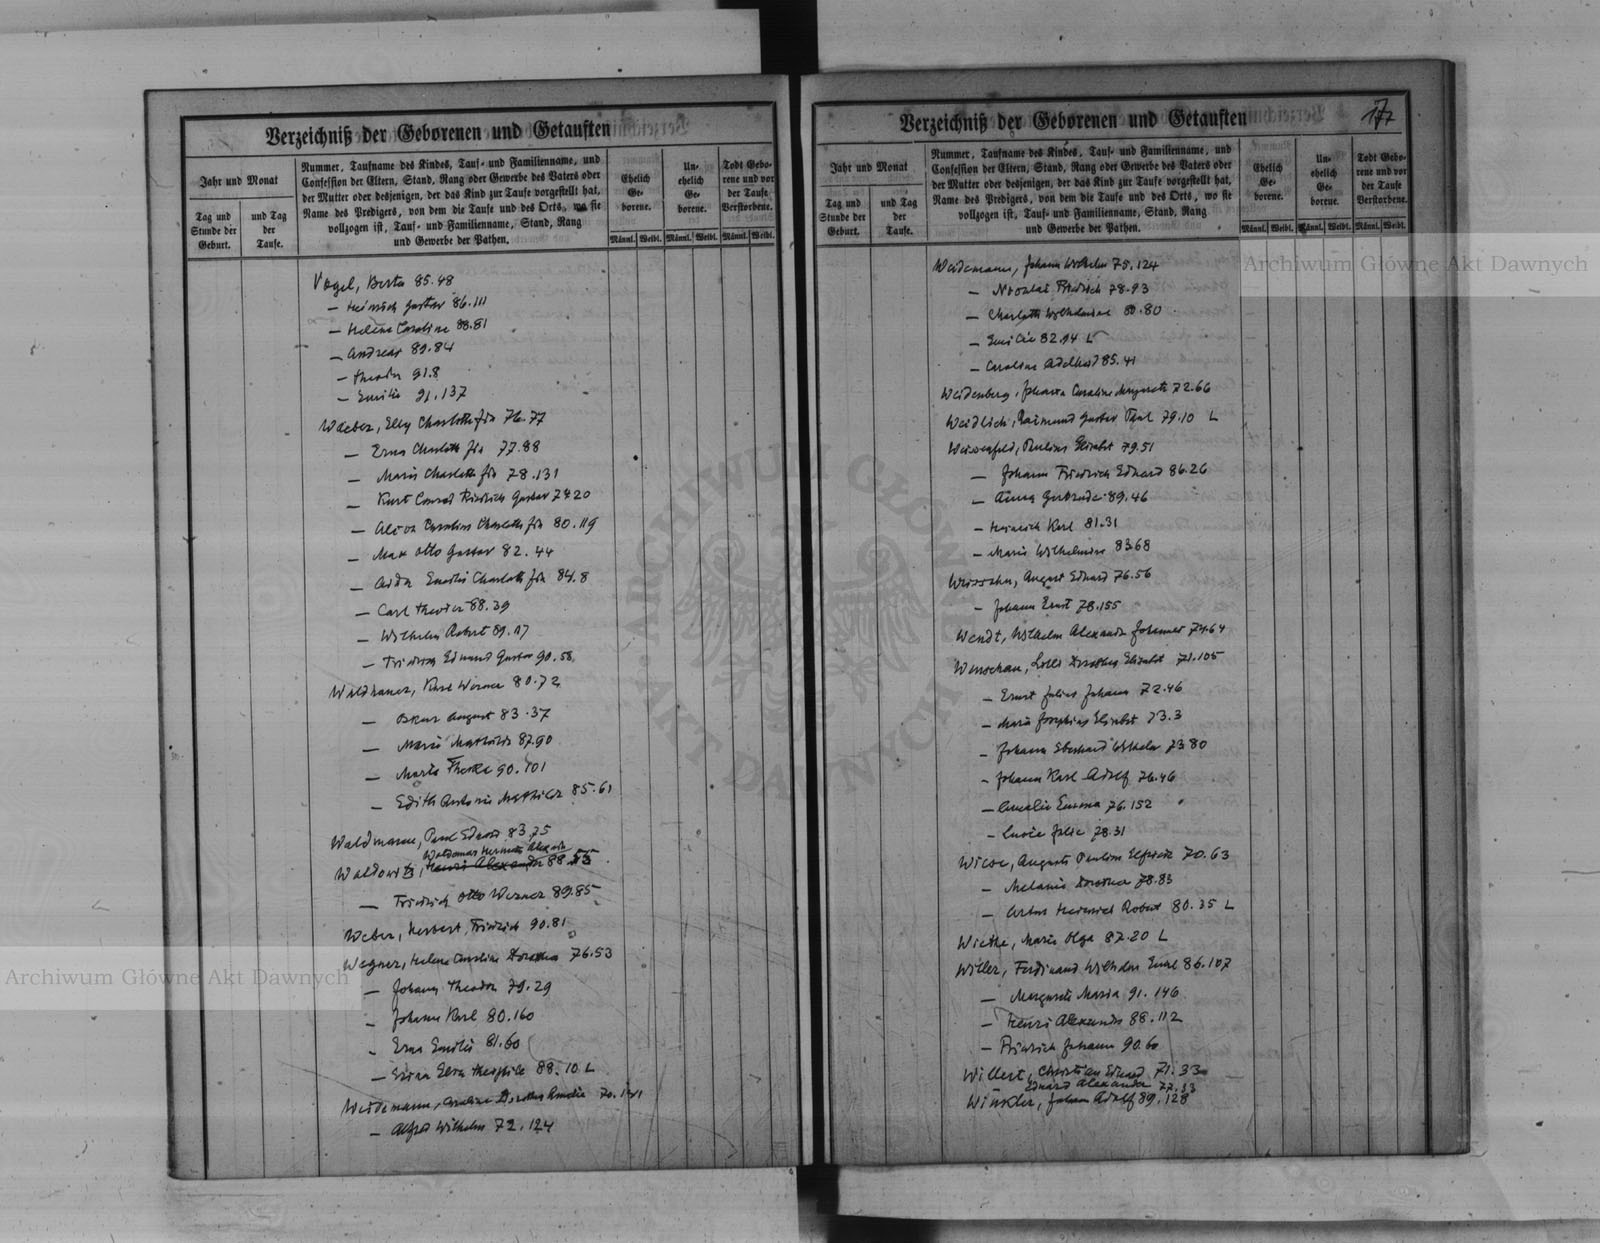 Verzeichniß der Geborenen und Getauften
Jahr und Monat
Tag und Stunde der Geburt.
und Tag der Taufe.
Nummer, Taufname des Kindes, Tauf- und Familienname, und
Confession der Eltern, Stand, Rang oder Gewerbe des Vaters oder
der Mutter oder desjenigen, der das Kind zur Taufe vorgestellt hat,
Name des Predigers, von dem die Taufe und des Orts, wo sie
vollzogen ist, Tauf- und Familienname, Stand, Rang
und Gewerbe der Pathen.
Ehelich Ge-borene.
Un-ehelich Ge-borene.
Todt Gebo-rene und vor der Taufe Verstorbene.
Männl. Weibl. Männl. Weibl. Männl. Weibl.
Vogel, Berta 85.48
— Heinrich Gustav 86.111
— Helene Caroline 88.81
— Andreas 89.84
— Theodor 91.8
— Emilie 91.137
Waeber, Elly Charlotte 76.77
— Erna Charlotte 77.88
— Marie Charlotte 78.131
— Kurt Conrad Friedrich Gustav
— Caroline Charlotte 80.119
— Max Otto Gustav 82.44
— Emilie Charlotte 84.8
— Carl Theodor 88.39
— Wilhelm Robert 89.17
— Friedrich Edmund Gustav 90.58
Waldhauer, Karl Werner 80.72
— Oskar August 83.37
— Marie Mathilde 87.90
— Marta Thekla 90.101
— Edith Antonie Mathilde 85.61
Waldmann, Paul Eduard 83.75
Waldemar Hermann
Waldowitz, Henri Alexander 88.55
— Friedrich Otto Werner 89.85
Weber, Herbert Friedrich 90.81
Wegner, Helene Caroline Dorothea 76.53
— Johann Theodor 79.29
— Johann Karl 80.160
— Erna Emilie 81.60
— Elza Theophile 88.10 L
Weidemann, Caroline Dorothea Amalie 70.141
— Alfred Wilhelm 72.124
Verzeichniß der Geborenen und Getauften
177
Jahr und Monat
Tag und Stunde der Geburt.
und Tag der Taufe.
Nummer, Taufname des Kindes, Tauf- und Familienname, und
Confession der Eltern, Stand, Rang oder Gewerbe des Vaters oder
der Mutter oder desjenigen, der das Kind zur Taufe vorgestellt hat,
Name des Predigers, von dem die Taufe und des Orts, wo sie
vollzogen ist, Tauf- und Familienname, Stand, Rang
und Gewerbe der Pathen.
Ehelich Ge-borene.
Un-ehelich Ge-borene.
Todt Gebo-rene und vor der Taufe Verstorbene.
Männl. Weibl. Männl. Weibl. Männl. Weibl.
Weidemann, Johann Wilhelm 75.124
— Nicolai Friedrich 78.93
— Charlotte Wilhelmine 80.80
— Emilie 82.94 L
— Caroline Adelheid 85.41
Weidenberg, Johanna Caroline Margarete 72.66
Weidlich, Raimund Gustav Paul 79.10 L
Weissenfeld, Pauline Elisabet 79.51
— Johann Friedrich Eduard 86.26
— Anna Gertrude 89.46
— Heinrich Karl 81.31
— Marie Wilhelmine 83.68
August Eduard 76.56
— Johann Ernst 78.155
Wendt, Wilhelm Alexander Johannes 74.64
Wenschau, Dorothea Elisabet 71.105
— Ernst Julius Johann 72.46
— Maria Josephine Elisabet 73.3
— Johann Eberhard Wilhelm 73.80
— Johann Karl Adolf 76.46
— Amalie Emma 76.152
— Lucie Julie 78.31
Wiese, Auguste Pauline 70.63
— Melanie Dorothea 78.83
— Artur Heinrich Robert 80.35 L
Wiethe, Marie Olga 87.20 L
Willer, Ferdinand Wilhelm Emil 86.107
— Margarete Maria 91.146
— Henri Alexander 88.112
— Friedrich Johann 90.60
Willert, Christian Eduard 71.33
Eduard Alexander 77.33
Winkler, Johann Adolf 89.128
Archiwum Główne Akt Dawnych
Archiwum Główne Akt Dawnych
ARCHIWUM GŁÓWNE AKT DAWNYCH